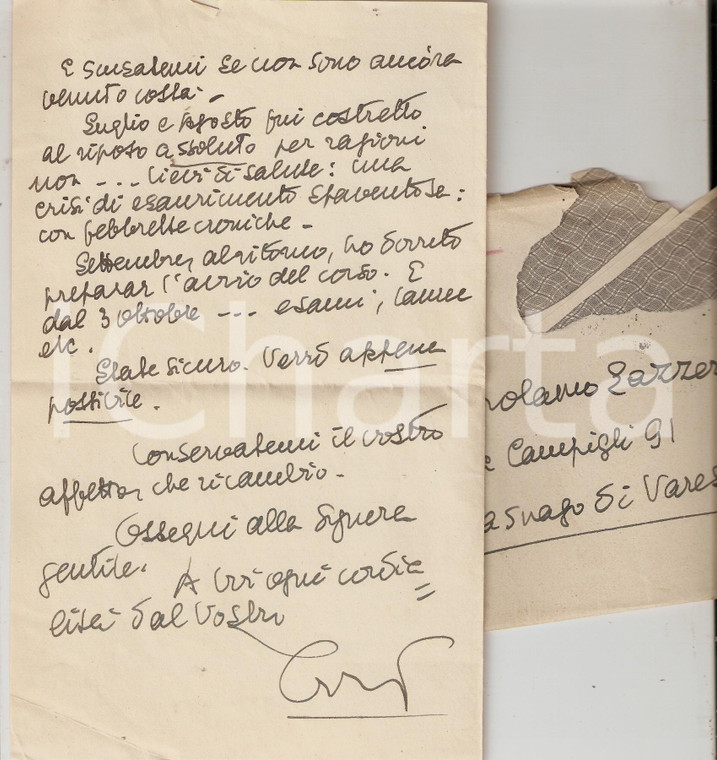 E scusatemi se non sono ancóra
venuto costà. -
Luglio e Agosto fui costretto
al riposo assoluto per ragioni
non - - - lievi di salute: una
crisi di esaurimento spaventosa:
con febbrette croniche -
Settembre, al ritorno, ho dovuto
preparar l'avvio del corso. E
dal 3 ottobre - - - esami, lauree
etc.
State sicuro. Verrò appena
possibile.
Conservatemi il vostro
affetto, che ricambio -
Ossequi alla Signora
gentile.
A voi ogni cordia=
lità dal Vostro
iCharta
rolamo Lazzer
e Campigli 91
asnago di Vares